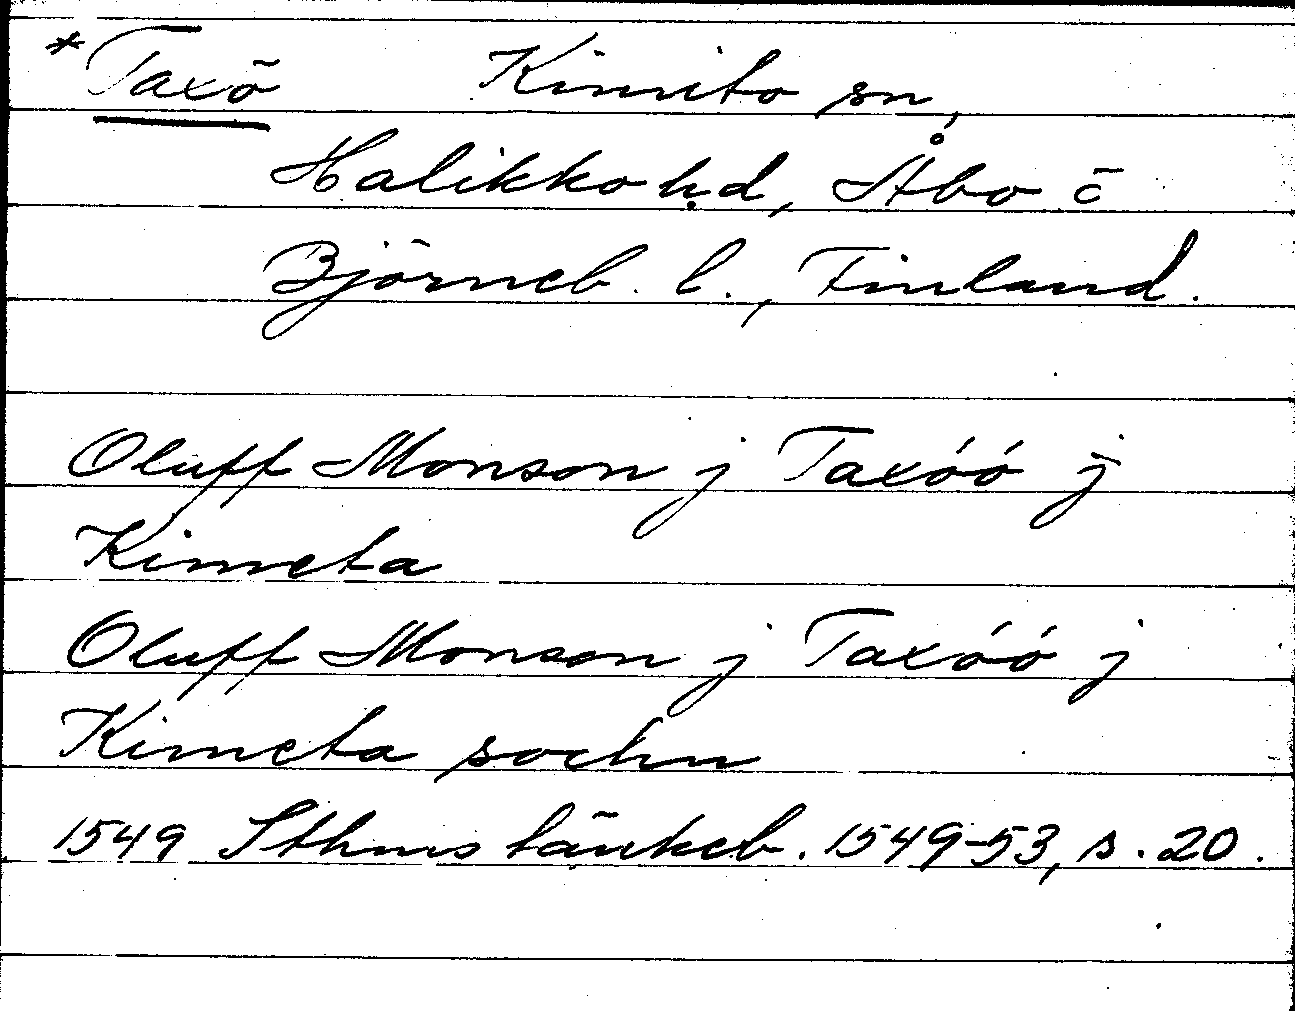 *Taxö Kimito sn,
Halikko hd, Åbo o
Björneb. l., Finland.
Oluff Monson j Taxóó j
Kimeta
Oluff Monson j Taxóó j
Kimeta sochn
1549 Sthms tänkeb. 1549-53, s. 20.